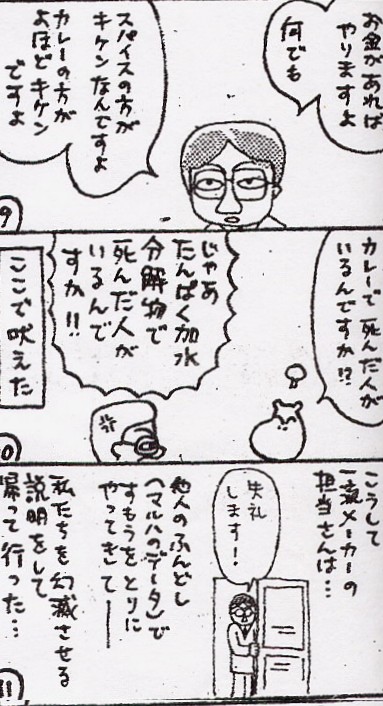 お金があれば
やりますよ
何でも
スパイスの方が
キケンなんですよ
カレーの方が
よほどキケン
ですよ
9
カレーで死んだ人が
いるんですか!?
じゃあ
たんぱく加水
分解物で
死んだ人が
いるんで
すか!!
ここで吠えた
0
こうして
一流メーカーの
担当さんは…
失礼
します!
他人のふんどし
(マルハのデータ)で
すもうをとりに
やってきて――
私たちを幻滅させる
説明をして
帰って行った…
11